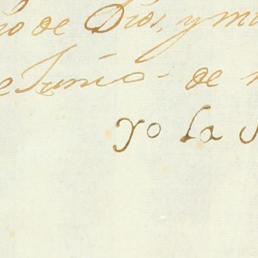 de Dios, y mu
e Junio - de
Yo la